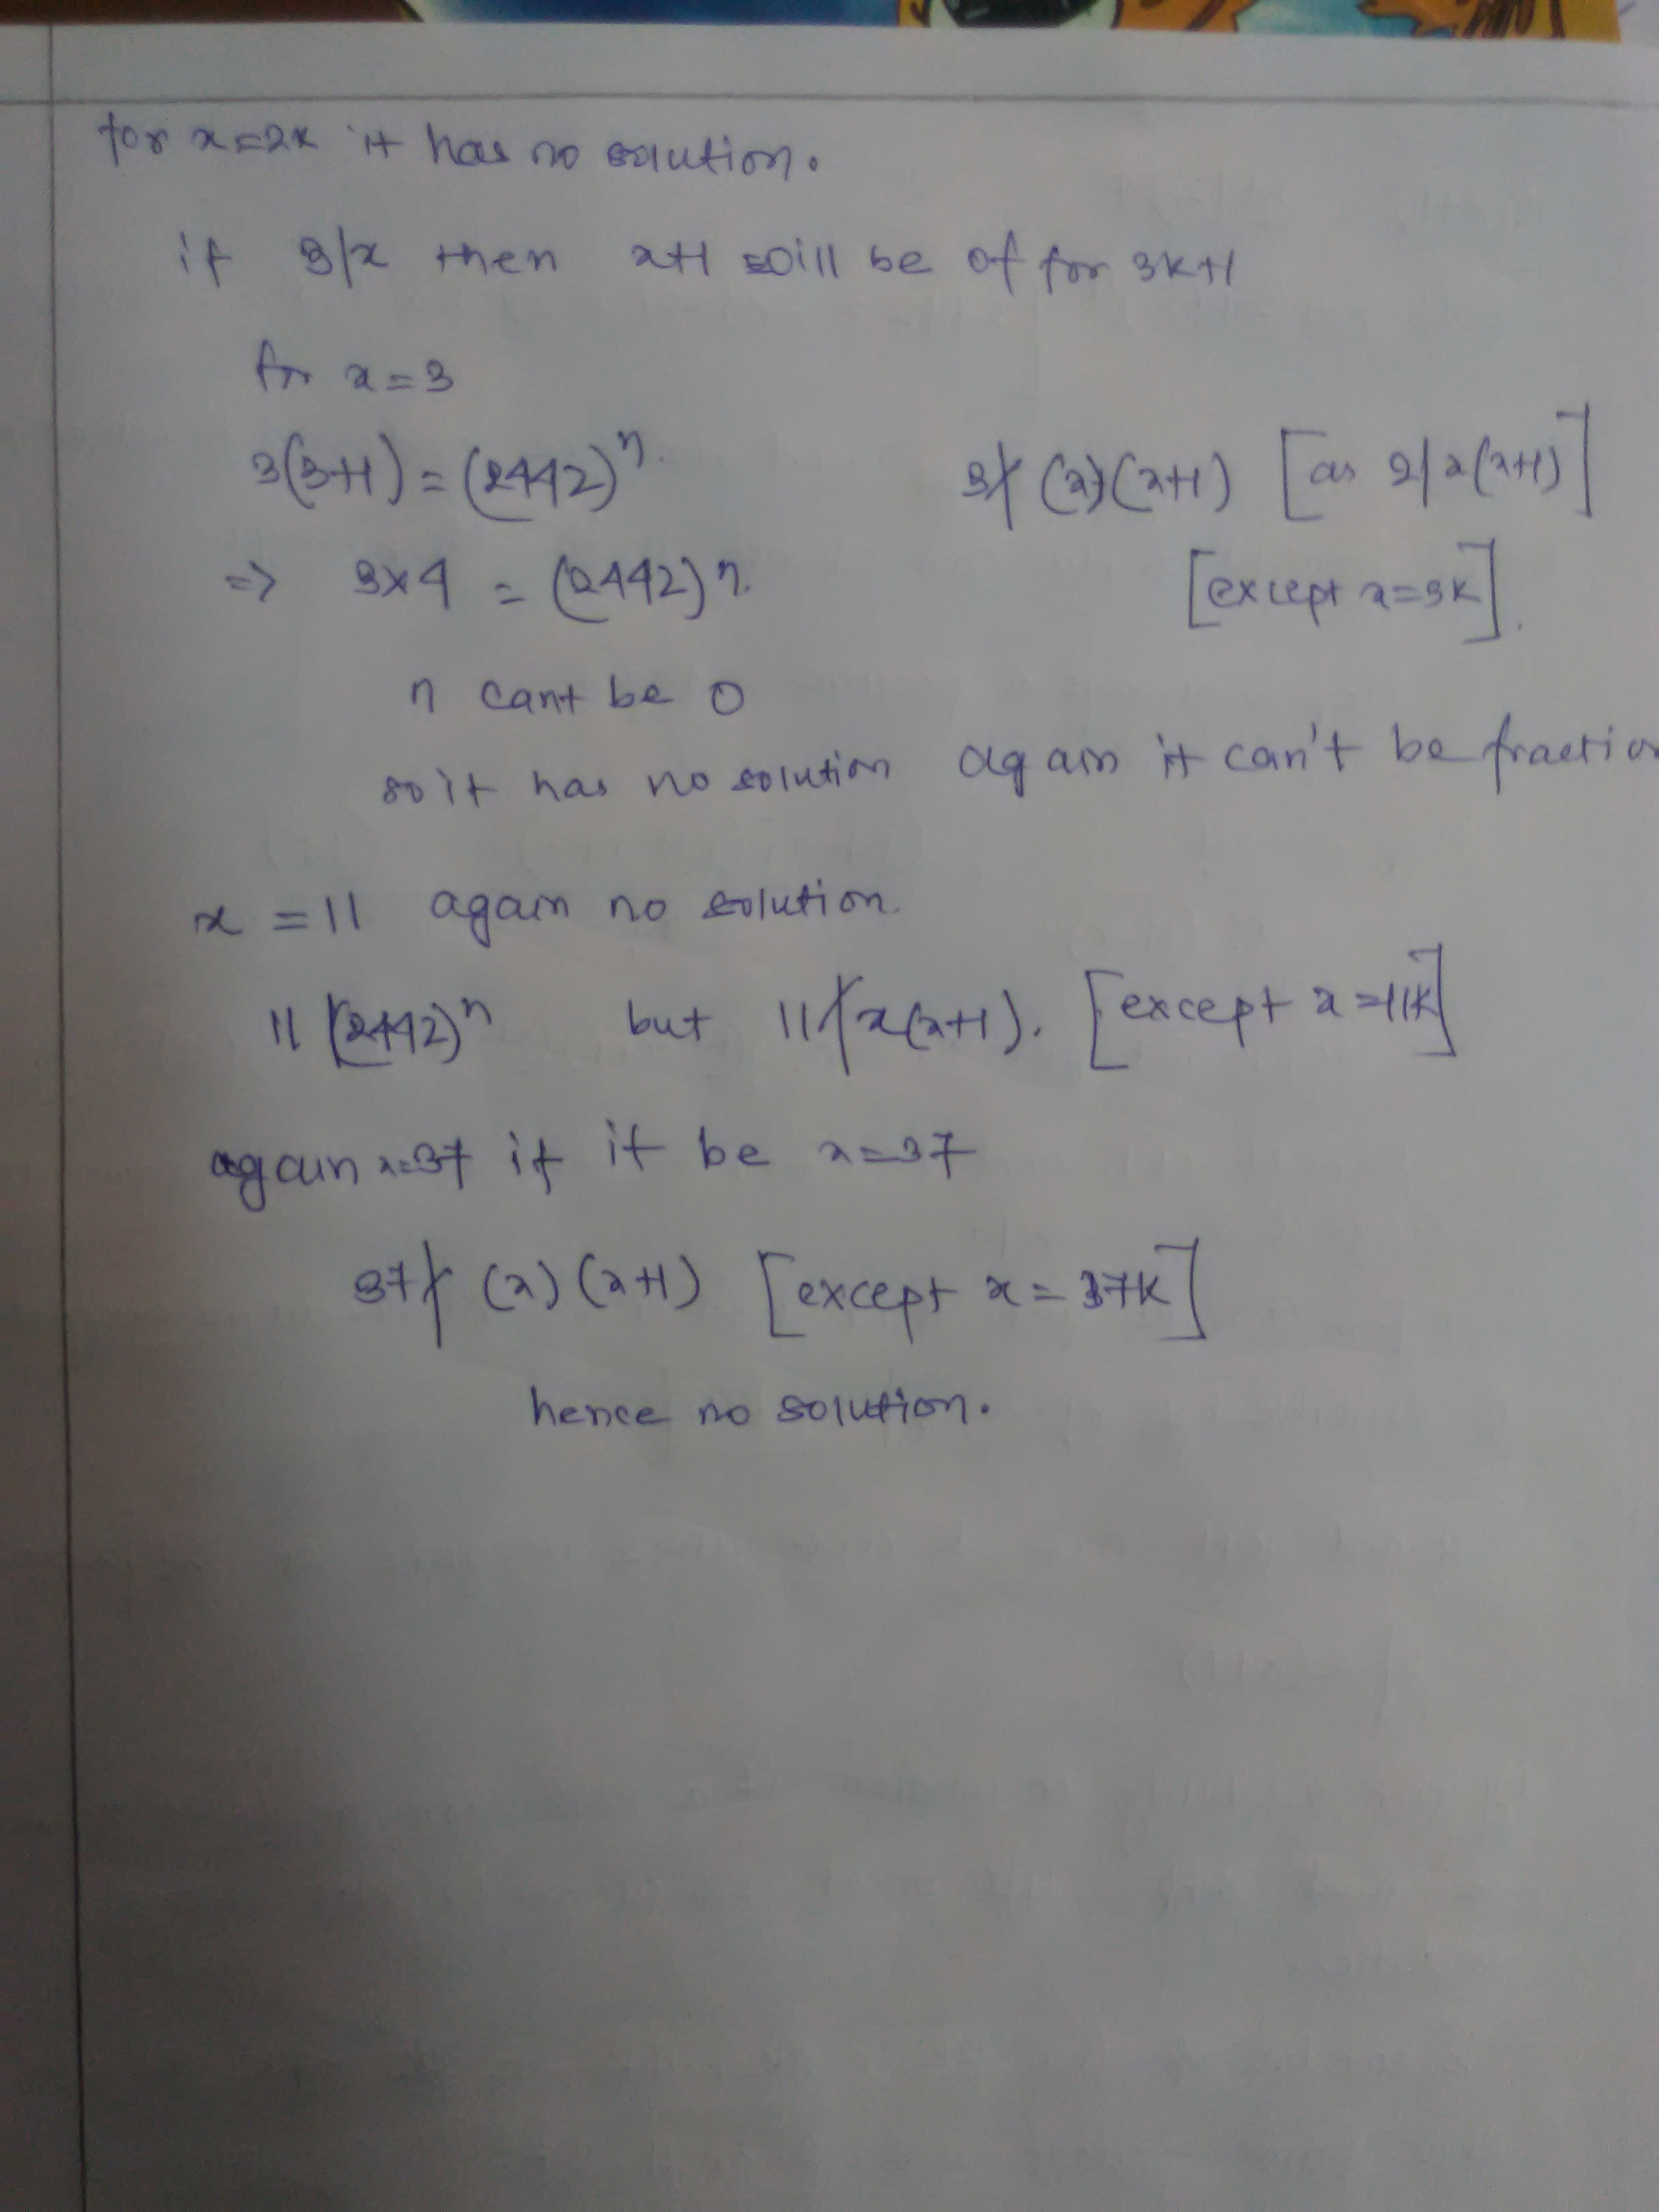 for x=2k it has no solution.
if 3/x then x+1 will be of for 3k+1
for x=3
3(3+1) = (2442)ⁿ. 3∤ (x)(x+1) [as 2/x(x+1)]
=> 3×4 = (2442)ⁿ. [except x=3k].
n cant be 0
so it has no solution again it can't be fraction
x = 11 again no solution.
11 |(2442)ⁿ but 11∤x(x+1). [except x=11k]
again x=37 if it be x=37
37∤ (x)(x+1) [except x=37k]
hence no solution.